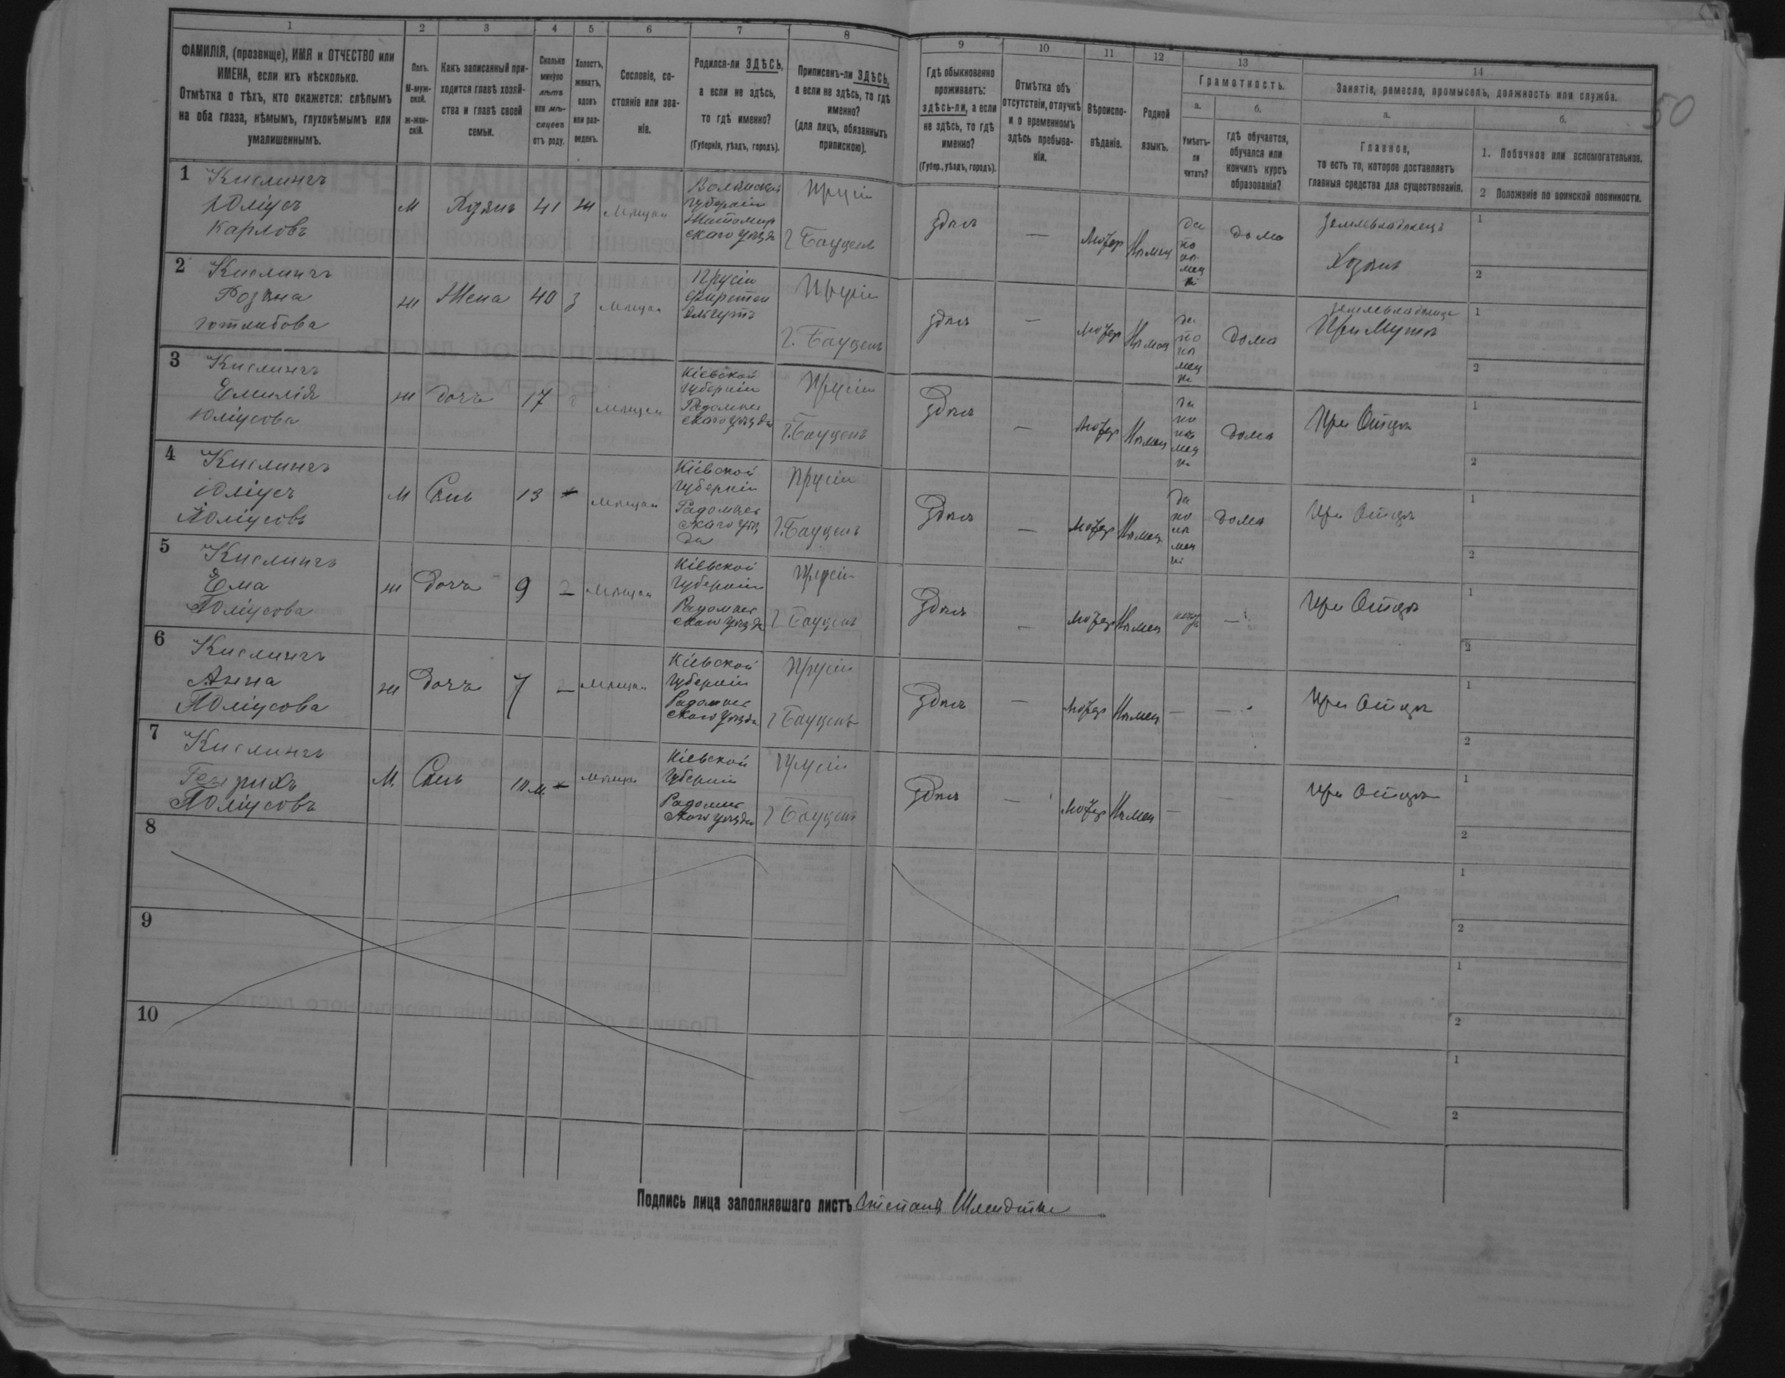 1 2 3 4 5 6 7 8 9 10 11 12 13 14
ФАМИЛІЯ, (прозвище), ИМЯ и ОТЧЕСТВО или
ИМЕНА, если ихъ нѣсколько.
Отмѣтка о тѣхъ, кто окажется: слѣпымъ
на оба глаза, нѣмымъ, глухонѣмымъ или
умалишеннымъ.
Полъ.
М-муж-
ской.
ж-жен-
скій.
Какъ записанный при-
ходится главѣ хозяй-
ства и главѣ своей
семьи.
Сколько
минуло
лѣтъ
или мѣ-
сяцевъ
отъ роду.
Холостъ,
женатъ,
вдовъ
или раз-
веденъ.
Сословіе, со-
стояніе или зва-
ніе.
Родился-ли ЗДѢСЬ,
а если не здѣсь,
то гдѣ именно?
(Губернія, уѣздъ, городъ).
Приписанъ-ли ЗДѢСЬ,
а если не здѣсь, то гдѣ
именно?
(для лицъ, обязанныхъ
припискою).
Гдѣ обыкновенно
проживаетъ:
здѣсь-ли, а если
не здѣсь, то гдѣ
именно?
(Губер., уѣздъ, городъ).
Отмѣтка объ
отсутствіи, отлучкѣ
и о временномъ
здѣсь пребыва-
ніи.
Вѣроиспо-
вѣданіе.
Родной
языкъ.
Грамотность.
а.
Умѣетъ-
ли
читать?
б.
гдѣ обучается,
обучался или
кончилъ курсъ
образованія?
Занятіе, ремесло, промыселъ, должность или служба.
а.
Главное,
то есть то, которое доставляетъ
главныя средства для существованія.
б.
1. Побочное или вспомогательное.
2 Положеніе по воинской повинности.
50
1 Кислингъ
Юліусъ
Карловъ
м Хозяинъ 41 ж мѣщан
Волынской
губерніи
Житомир
скаго уѣзда
Прусіи
г Бауценъ
здѣсь — Лютер Нѣмец
да
по
нѣ
мец
ки
дома
Землевладелецъ
Хозяинъ
1
2
2 Кислингъ
Розина
Готлибова
ж Жена 40 з мѣщан
Прусіи
Прусіи
г. Бауценъ
здѣсь — Лютер Нѣмец
да
по
нѣ
мец
ки
дома
При Мужѣ
1
2
3 Кислингъ
Емилія
Юліусова
ж дочь 17 — мѣщан
Кіевской
губерніи
Радомыс
скаго уѣзда
Прусіи
г. Бауценъ
Здѣсь — Лютер Нѣмец
да
по
нѣ
мец
ки
дома
При Отцѣ
1
2
4 Кислингъ
Юліусъ
Юліусовъ
м Сынъ 13 мѣщан
Кіевской
губерніи
Радомыс
скаго уѣз
да
Прусіи
г. Бауценъ
Здѣсь — Лютер Нѣмец
да
по
нѣ
мец
ки
дома
При Отцѣ
1
2
5 Кислингъ
Ема
Юліусова
ж Дочь 9 — мѣщан
Кіевской
губерніи
Радомыс
скаго уѣзда
Прусіи
г Бауценъ
Здѣсь — Лютер Нѣмец —
При Отцѣ
1
2
6 Кислингъ
Анна
Юліусова
ж Дочь 7 — мѣщан
Кіевской
губерніи
Радомыс
скаго уѣзда
Прусіи
г Бауценъ
Здѣсь — Лютер Нѣмец — —
При Отцѣ
1
2
7 Кислингъ
Генрихъ
Юліусовъ
М. Сынъ 10 м. мѣщан
Кіевской
губерніи
Радомыс
скаго уѣзда
Прусіи
г Бауценъ
Здѣсь — Лютер Нѣмец — —
При Отцѣ
1
2
8
1
2
9
1
2
10
1
2
Подпись лица заполнявшаго листъ